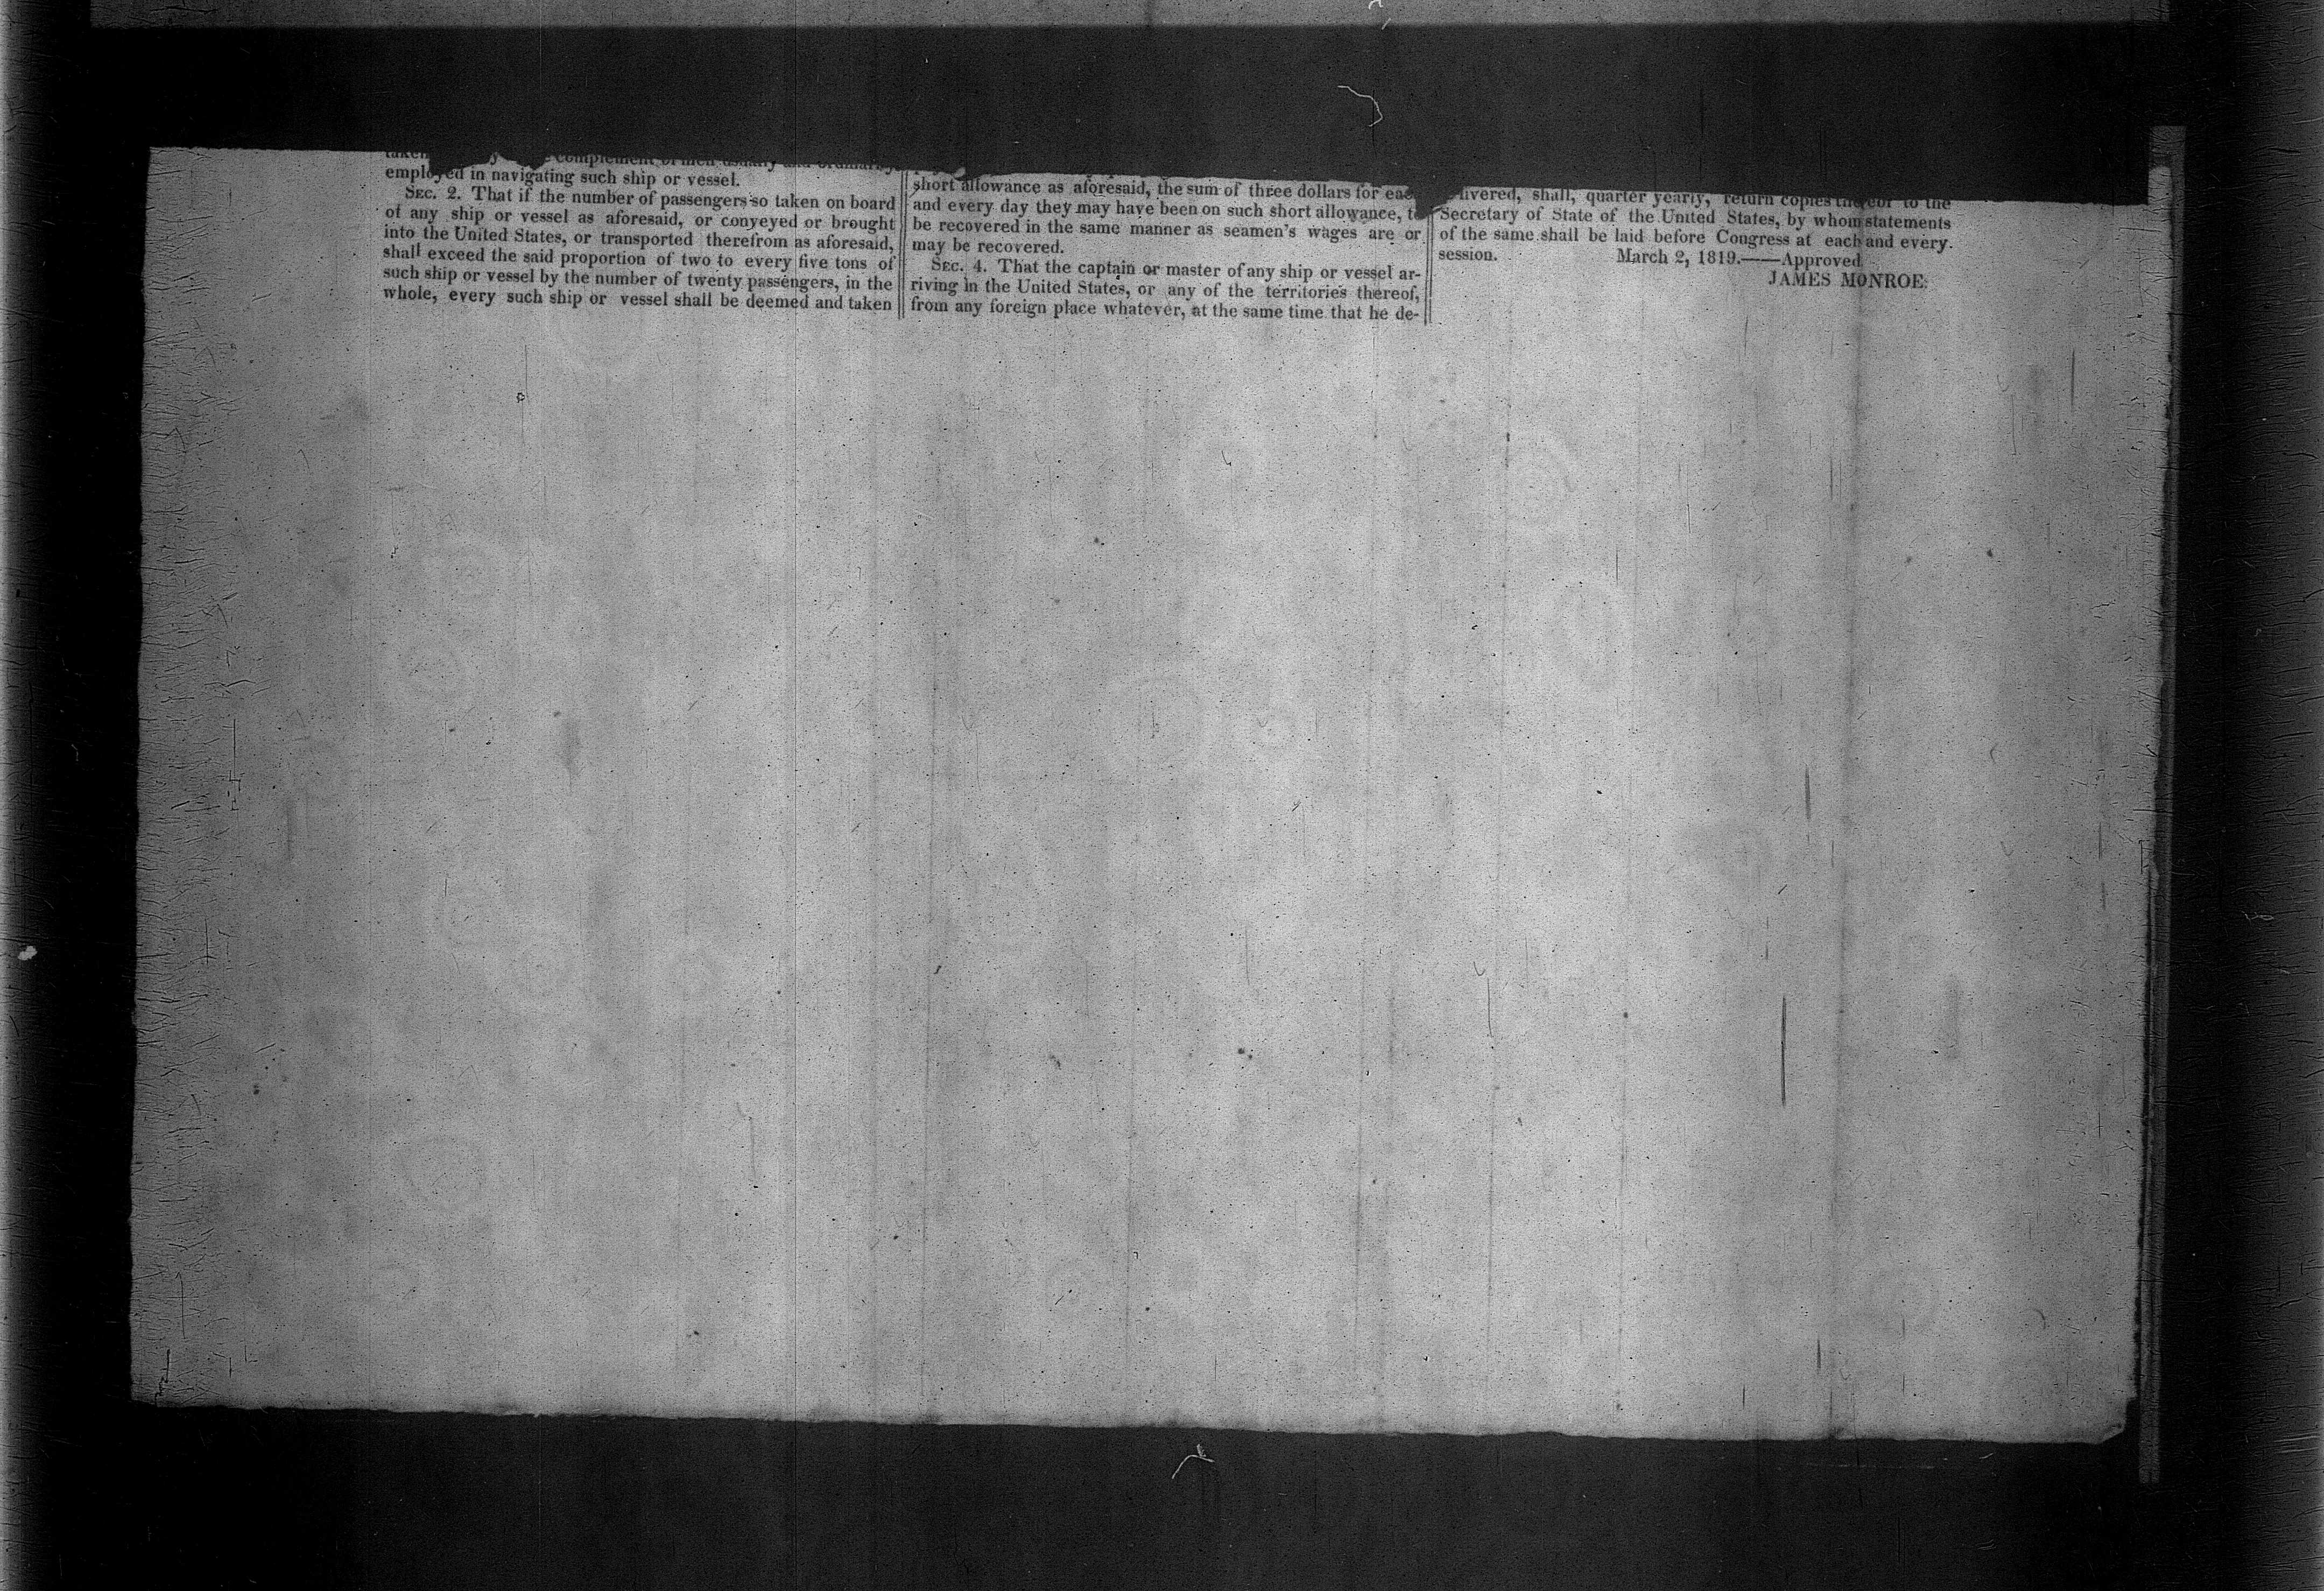 complement of men usually and ordinarily
employed in navigating such ship or vessel.
SEC. 2. That if the number of passengers so taken on board
of any ship or vessel as aforesaid, or conyeyed or brought
into the United States, or transported therefrom as aforesaid,
shall exceed the said proportion of two to every five tons of
such ship or vessel by the number of twenty passengers, in the
whole, every such ship or vessel shall be deemed and taken
short allowance as aforesaid, the sum of three dollars for each
and every day they may have been on such short allowance, to
be recovered in the same manner as seamen's wages are or
may be recovered.
SEC. 4. That the captain or master of any ship or vessel ar-
riving in the United States, or any of the territories thereof,
from any foreign place whatever, at the same time that he de-
livered, shall, quarter yearly, return copies thereof to the
Secretary of State of the United States, by whom statements
of the same shall be laid before Congress at each and every
session. March 2, 1819.——Approved
JAMES MONROE.